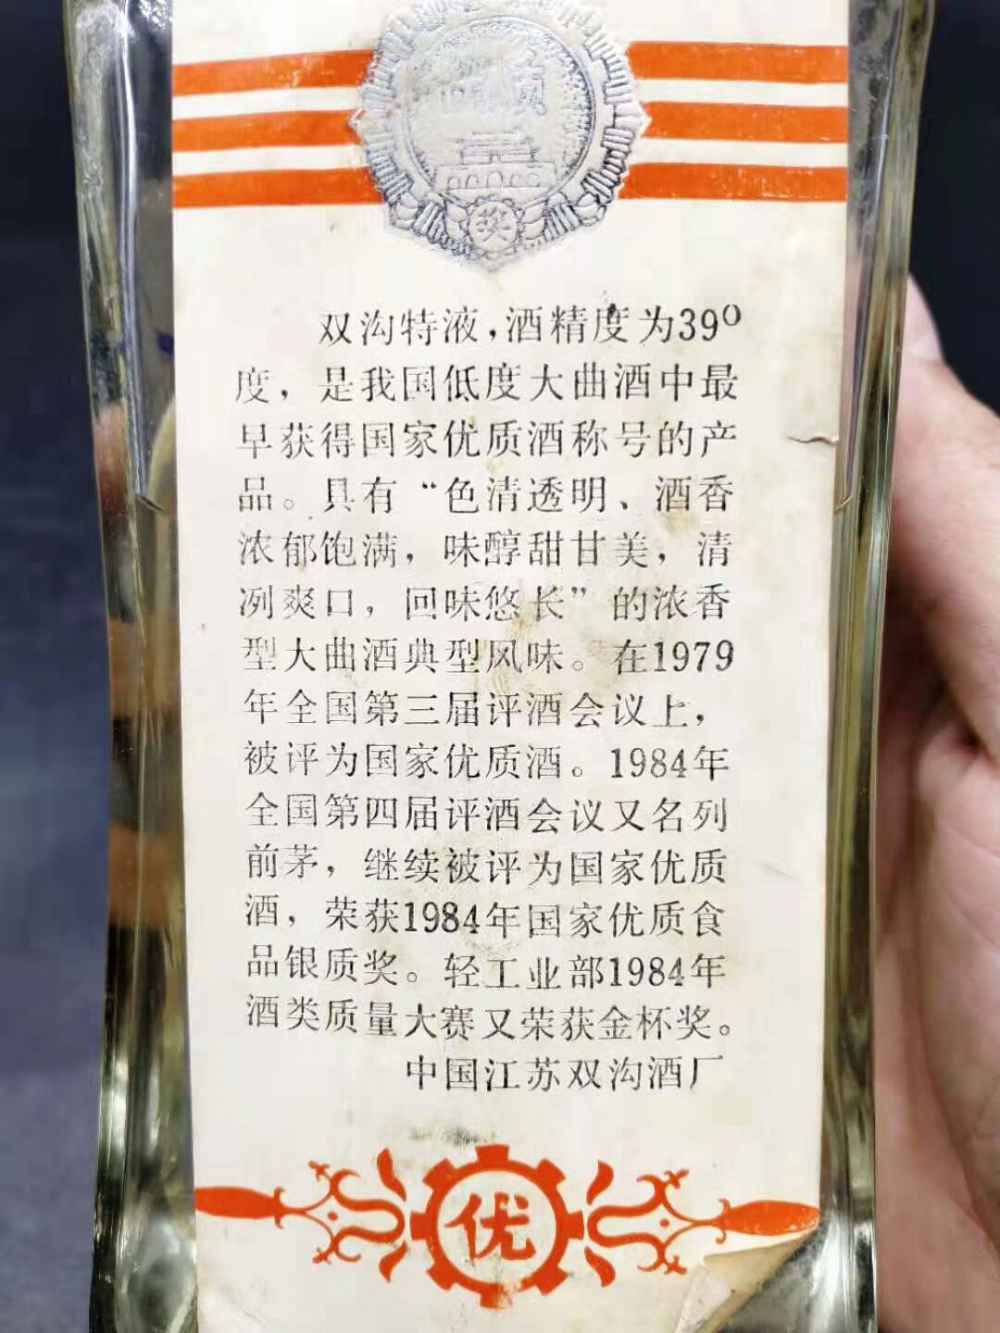 质
量
奖
双沟特液，酒精度为39º
度，是我国低度大曲酒中最
早获得国家优质酒称号的产
品。具有“色清透明、酒香
浓郁饱满，味醇甜甘美，清
冽爽口，回味悠长”的浓香
型大曲酒典型风味。在1979
年全国第三届评酒会议上，
被评为国家优质酒。1984年
全国第四届评酒会议又名列
前茅，继续被评为国家优质
酒，荣获1984年国家优质食
品银质奖。轻工业部1984年
酒类质量大赛又荣获金杯奖。
中国江苏双沟酒厂
优